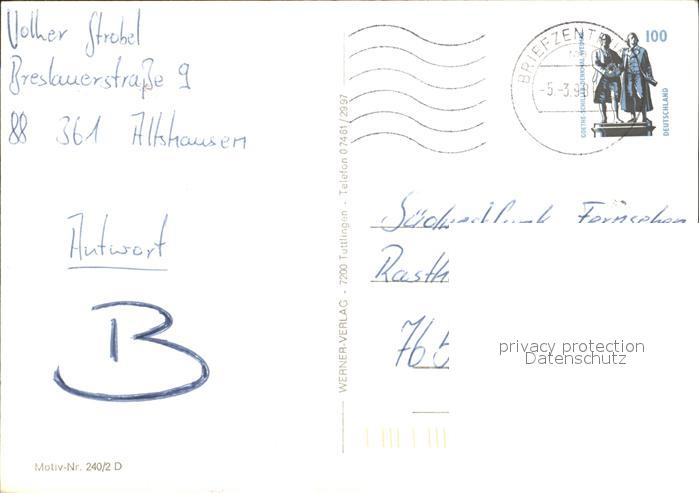 Volker Strobel
Breslauerstraße 9
88 361 Altshausen
Antwort
B
Motiv-Nr. 240/2 D
WERNER-VERLAG - 7200 Tuttlingen - Telefon 07461/2997
BRIEFZENTRUM
-5.-3.9
GOETHE-SCHILLER-DENKMAL WEIMAR
100
DEUTSCHLAND
Fernsehen
Rasth
765
privacy protection
Datenschutz